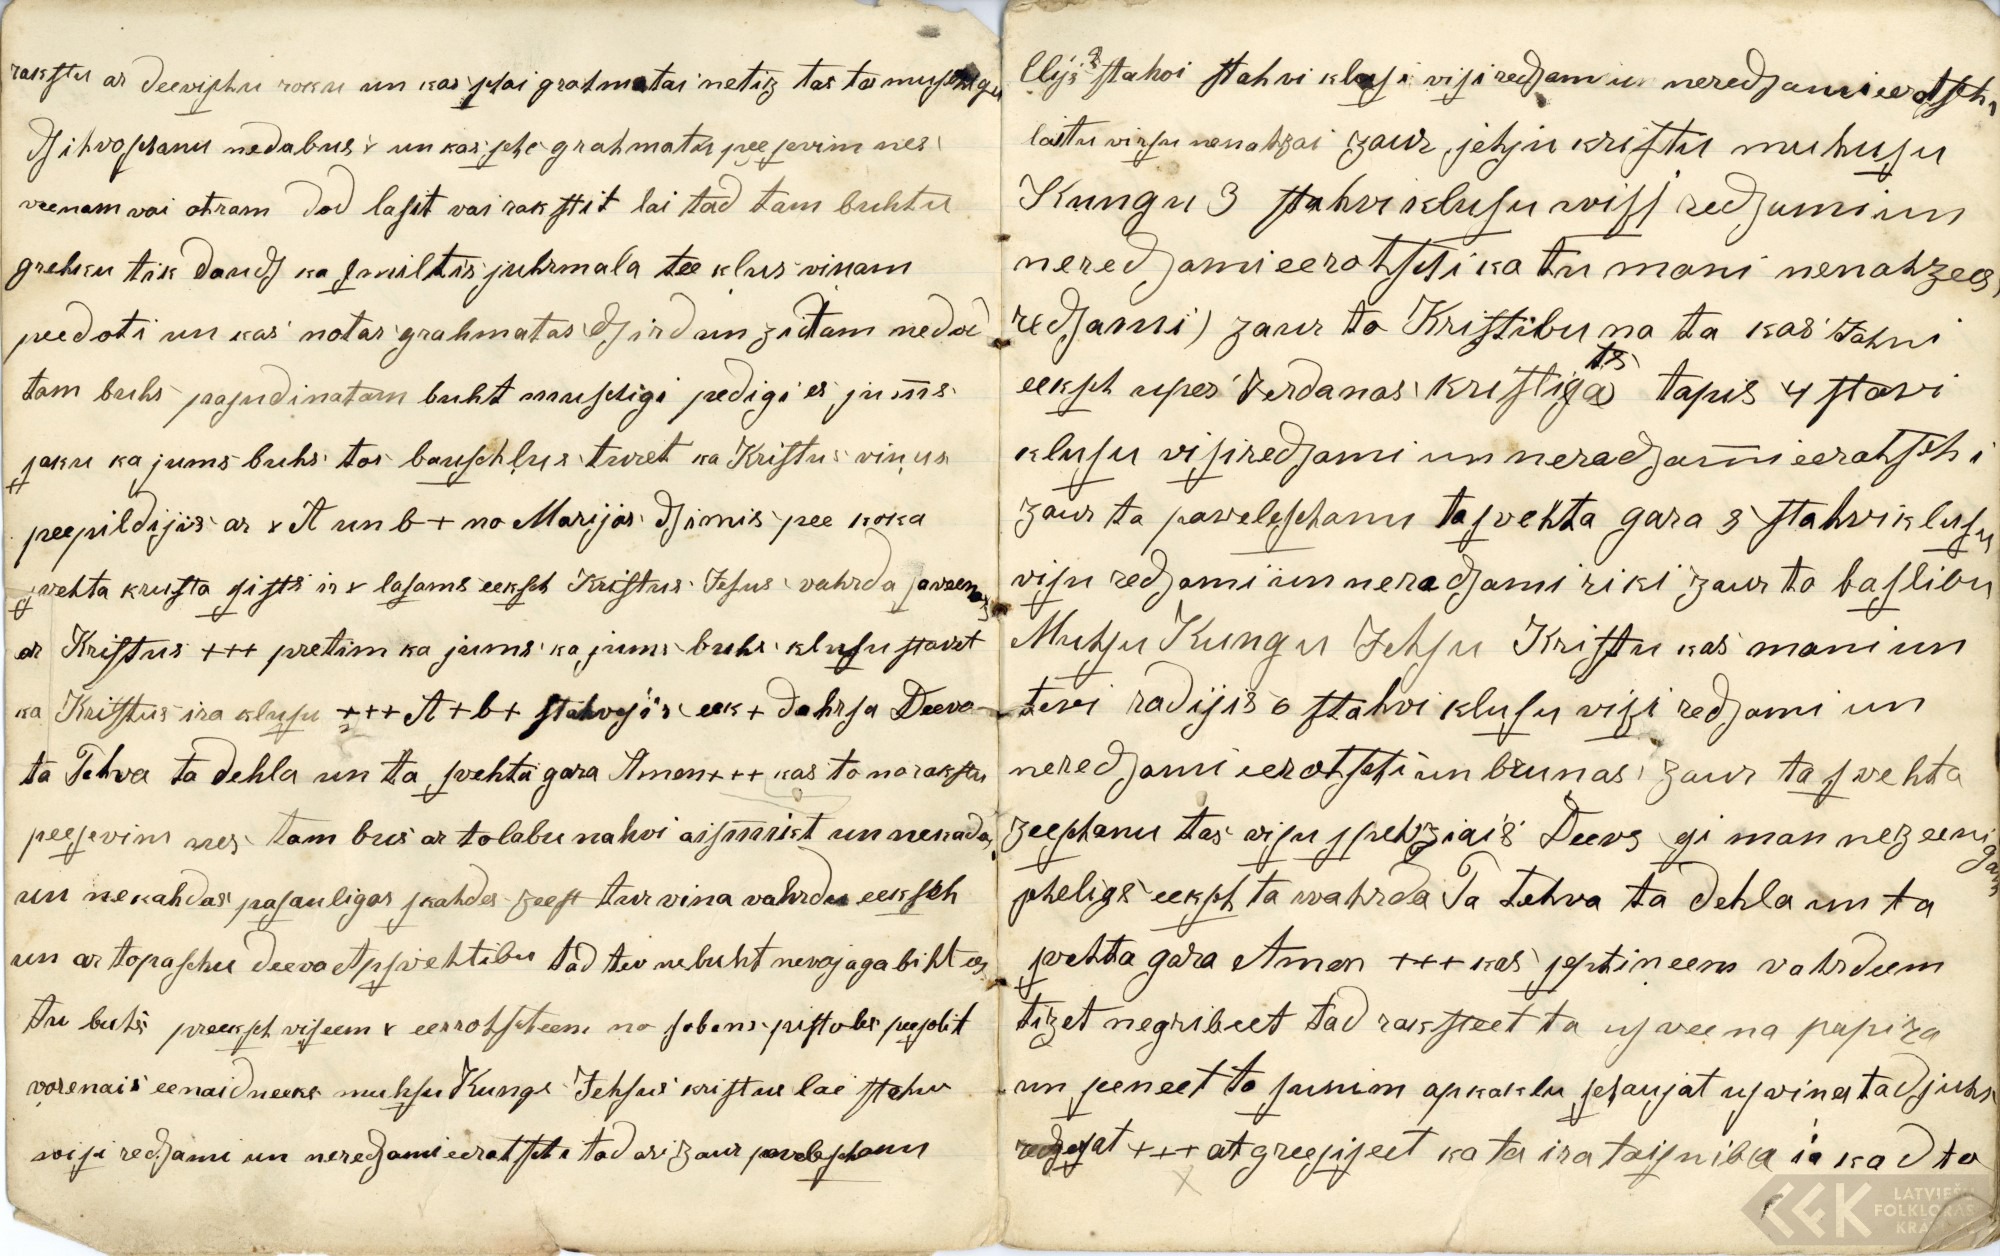 rakstu ar deevischu roku un kas schai grahmatai netiz tas to muschigu
dsihvoschanu nedabus x un kas sche grahmatu pee sevim nes
veenam vai otram dod lasit vai rakstit lai tad tam buhtu
grehku tik daudz ka smiltis juhrmala tee klus vinam
peedoti un kas no tas grahmatas dsird un zittam nedod
tam buhs pasudinatam buht muschigi pedigi es jums
saku ka jums buhs tos bauschlus turet ka Kristus vinus
peepildijis ar x A un b + no Marijas dsimis pee koka
svehta krusta sists ir x lasams eeksch Kristus Jesus vahrda saveenos
ar Kristus +++ pretim ka jums ka jums buhs klusu stavet
ka Kristus ira klusu +++ A + b + stahvejis eek + dahrsa Deeva
ta Tehva ta dehla un ta svehta gara Amen +++ kas to norakstu
pee sevim nes tam bus ar to labu nahvi aismikt un nekada
un nekahdas pasauligas skahdes zeest tur vina vahrdu eeksch
un ar to paschu deeva Apsvehtibu tad tev nebuht nevajaga bihtes
tu buhs preeksch viseem x eerotscheem no sobens pistoles peepolit
varenais eenaidneeks muhsu Kungs Jehsus kristus lai stahv
wisi redsami un neredsami eerotschi tad ari zaur pavelschanu
Ilijs 2 stahvi stahvi klusi visi redsami un neredsami eerotschi
laitu virsu nenahzai zaur jehsu kristu muhusu
Kungu 3 stahvi klusu wissi redsami un
neredsami eerotschi ka tu mani nenahzees
redsami) zaur to Kristibu no ta kas Jahni
eeksch upes Jerdanas kristigats tapis 4 stavi
klusu visi redsami un neradsami eerohtschi
zaur ta paveleschanu ta svehta gara 5 stahvi klusu
visu redsami un neradsami riki zaur to baslibu
Muhsu Kungu Jehsu Kristu kas mani un
tevi radijis 6 stahvi klusu visi redsami un
neredsami eerotschi un brunas zaur ta svehta
zeeschanu tas visu spehziais Deevs gi man nezeenigam
pheligs eeksch ta wahrda Ta Tehva ta dehla un ta
svehta gara Amen +++ kas scptineem vahrdeem
tizet negribeet tad raksteet ta us veena papira
un seneet to sunim ap kaklu schaujat us vina tad juhs
redsesat +++ atgreesiseet ka ta ira taisniba ia kad to
LATVIEŠU
FOLKLORAS